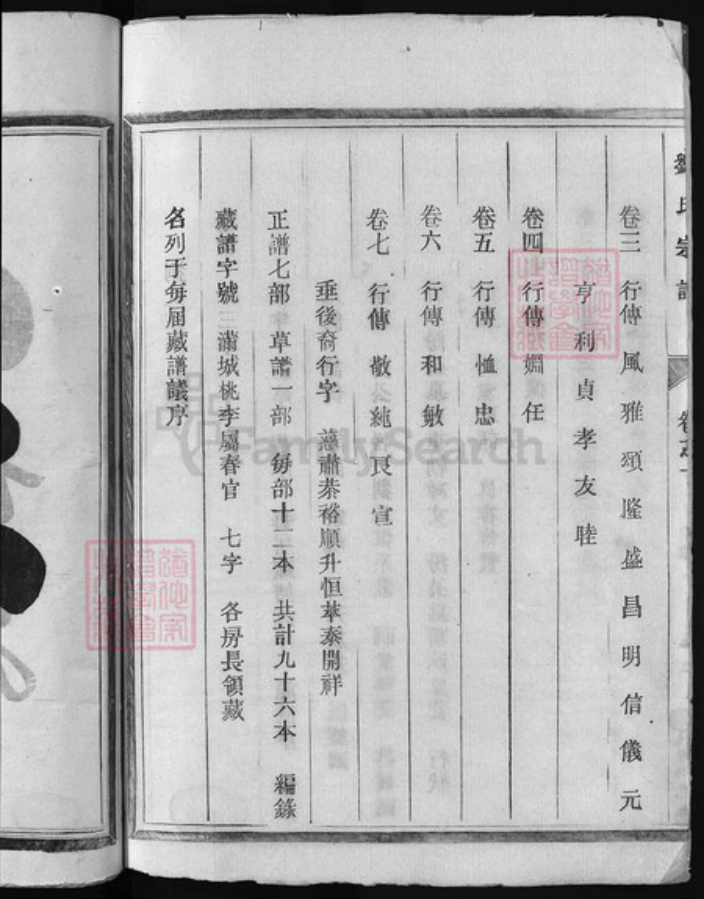 劉氏宗譜
卷三 行傳 風雅頌隆盛昌明信儀元
亨利貞孝友睦
卷四 行傳 婣任
卷五 行傳 恤忠
卷六 行傳 和敏
卷七 行傳 敬純良宣
垂後裔行字 慈肅恭裕順升恒萃泰開祥
正譜七部 草譜一部 每部十二本 共計九十六本 編錄
藏譜字號 滿城桃李屬春官 七字 各房長領藏
名列于每届藏譜議序
FamilySearch